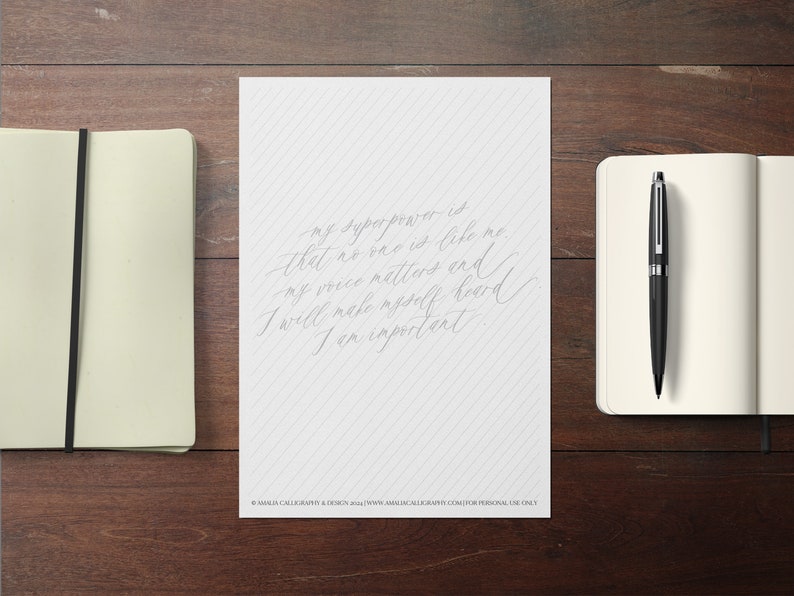 my superpower is
that no one is like me.
my voice matters and
I will make myself heard.
I am important.
© AMALIA CALLIGRAPHY & DESIGN 2024 | WWW.AMALIACALLIGRAPHY.COM | FOR PERSONAL USE ONLY